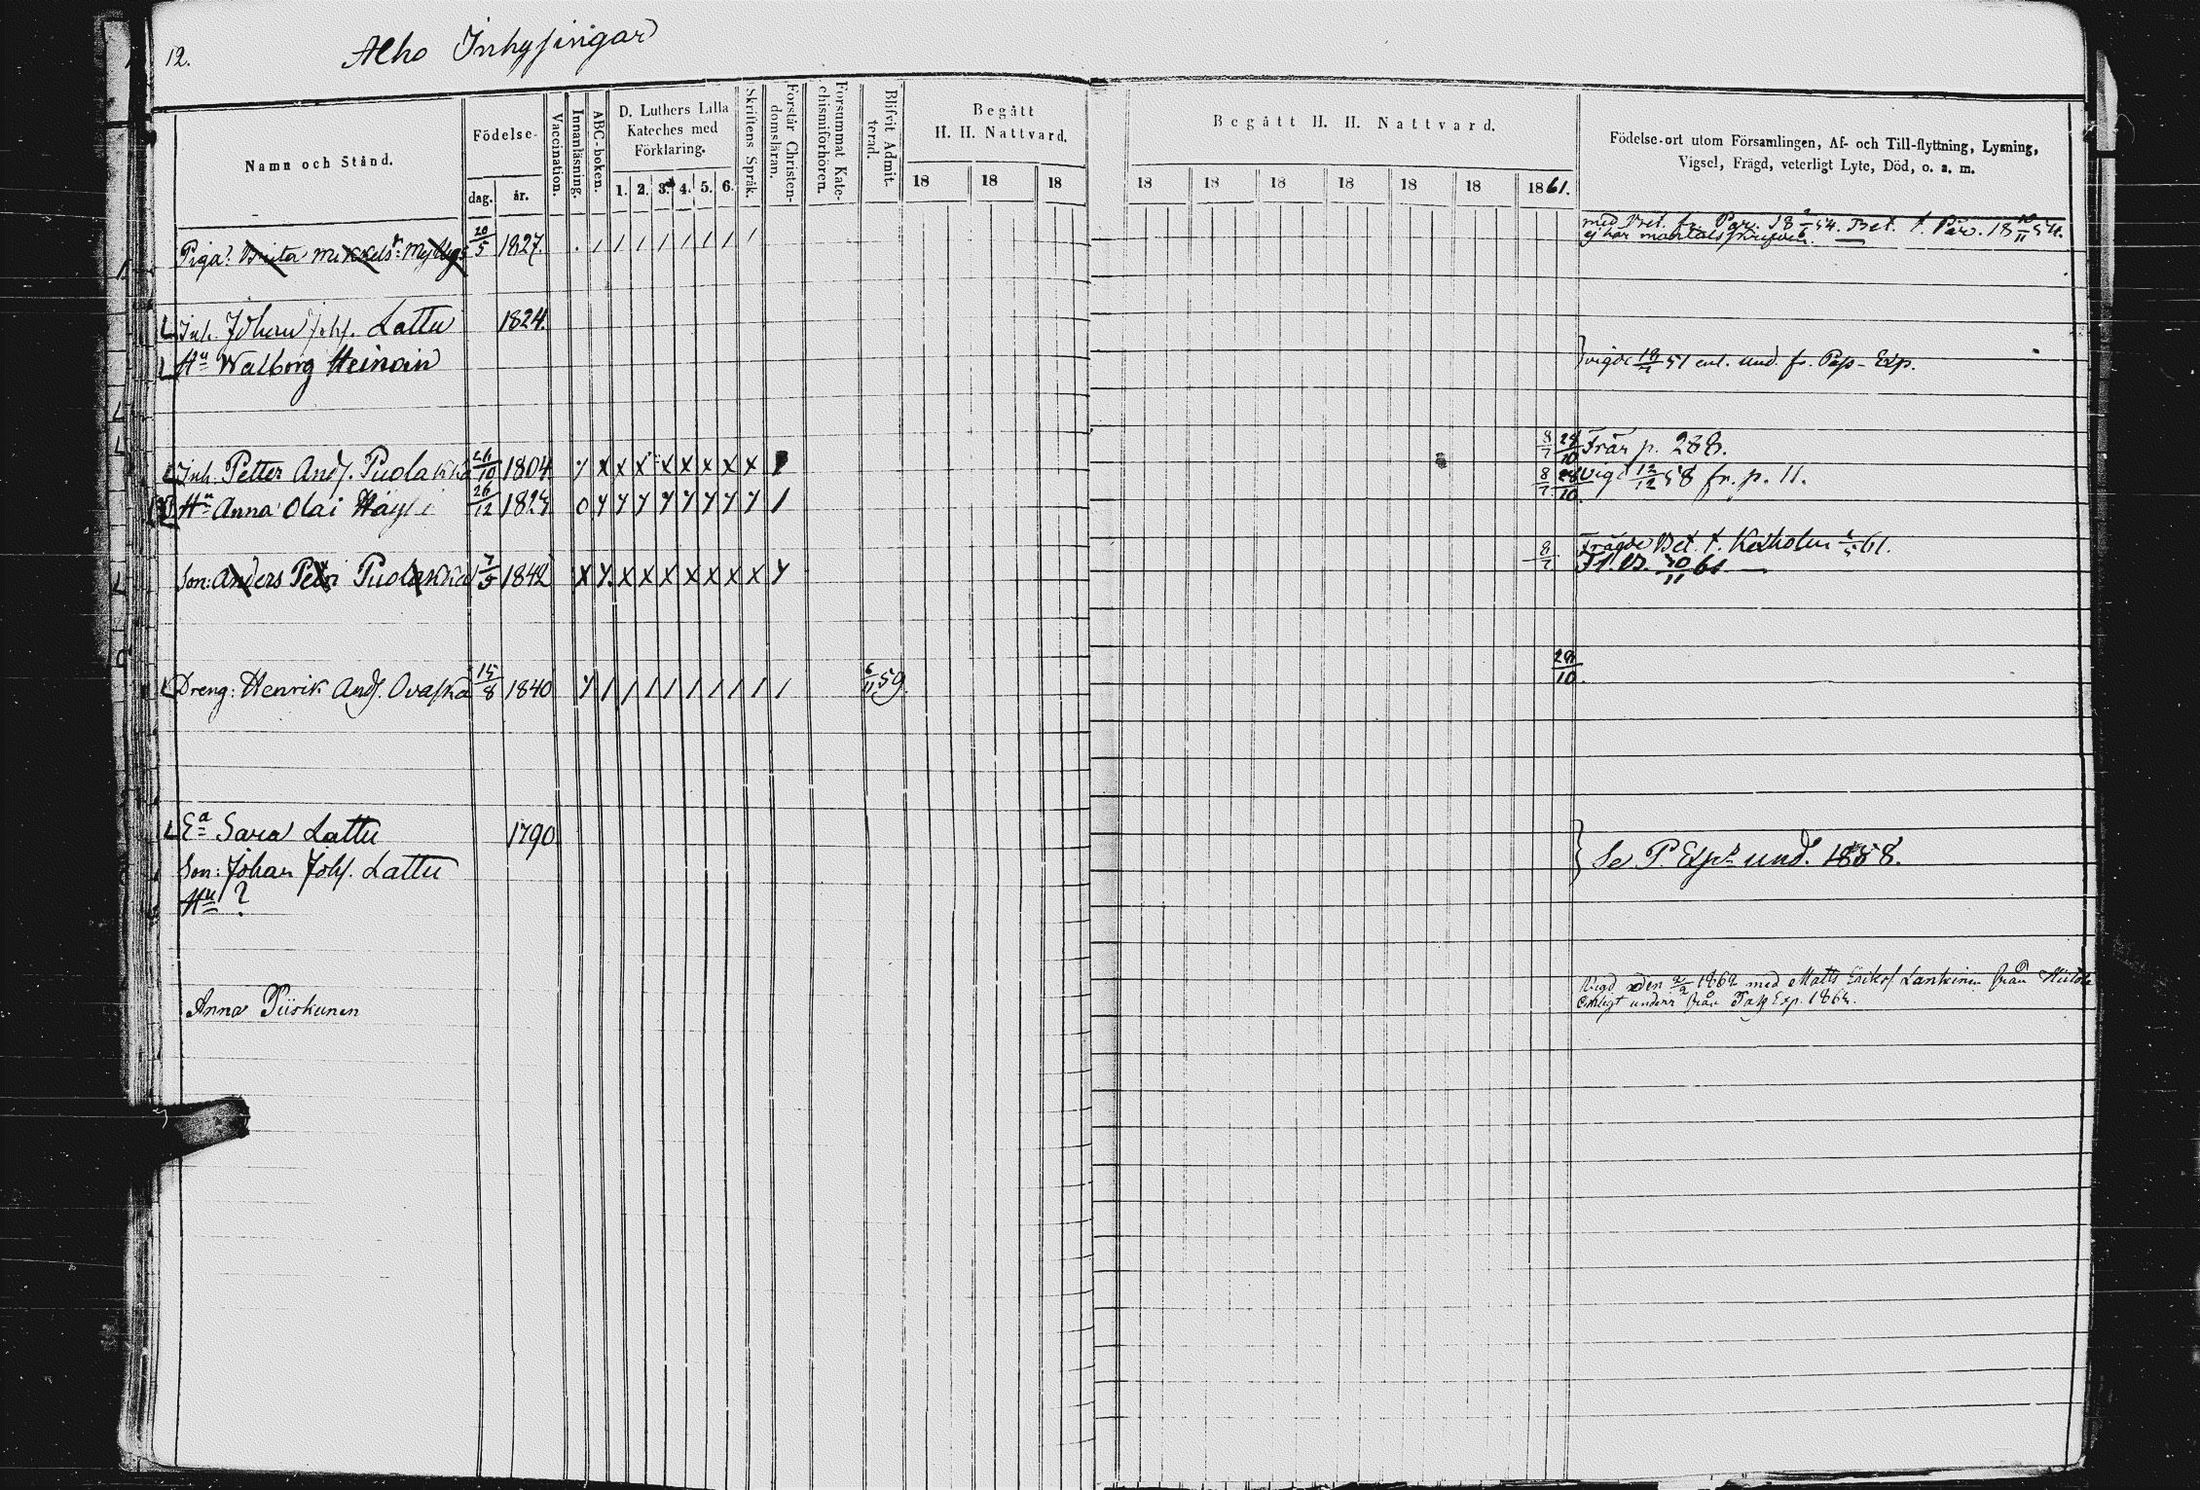 12.
Alho Inhysingar
Namn och Stånd.
Födelse-
dag.
år.
Vaccination.
Innanläsning.
ABC-boken.
D. Luthers Lilla
Kateches med
Förklaring.
1. 2. 3. 4. 5. 6.
Skriftens Språk.
Förstår Christen-
domsläran.
Försummat Kate-
chismiförhören.
Blifvit Admit-
terad.
Begått
H. H. Nattvard.
18 18 18
Begått H. H. Nattvard.
18 18 18 18 18 18 1861.
Födelse-ort utom Församlingen, Af- och Till-flyttning, Lysning,
Vigsel, Frägd, veterligt Lyte, Död, o. s. m.
Piga: Brita Mikkelsr 20/5 1827. . / / / / / / / / med Bet. fr. Par. 54. Bet. t. Par. 18 10/11 54.
ej har mantalsskrifven. —
Inh. Johan Johs. Lattu 1824.
Hu Walborg Heinoin vigde 51 enl. und. fr. Pass-Exp.
Inh. Petter Ands. Puolakka 26/10 1804. y x x x x x x x x 8/7 28/10 Frän p. 288.
Hu Anna Olai Häyhi 26/12 1824 0 y y y y y y y y / 8/7 28/10 Vigd 12/12 58 fr. p. 11.
Frägde Bet. t. Kexholm 61.
Son: Anders Petri Puolakka 7/5 1842 x y x x x x x x x y 8/7 30/11 61. —
Dreng: Henrik Ands. Ovaska 15/8 1840 y / / / / / / / / / 6/11 59. 28/10
Ea Sara Lattu 1790
Son: Johan Johs. Lattu Se P Expr und. 1858.
Hu ?
Vigd den 2/2 1862 med Matts Eriks. Lankinen från Hiitola
Anna Piiskunen Enligt underr från Pass Exp. 1862.